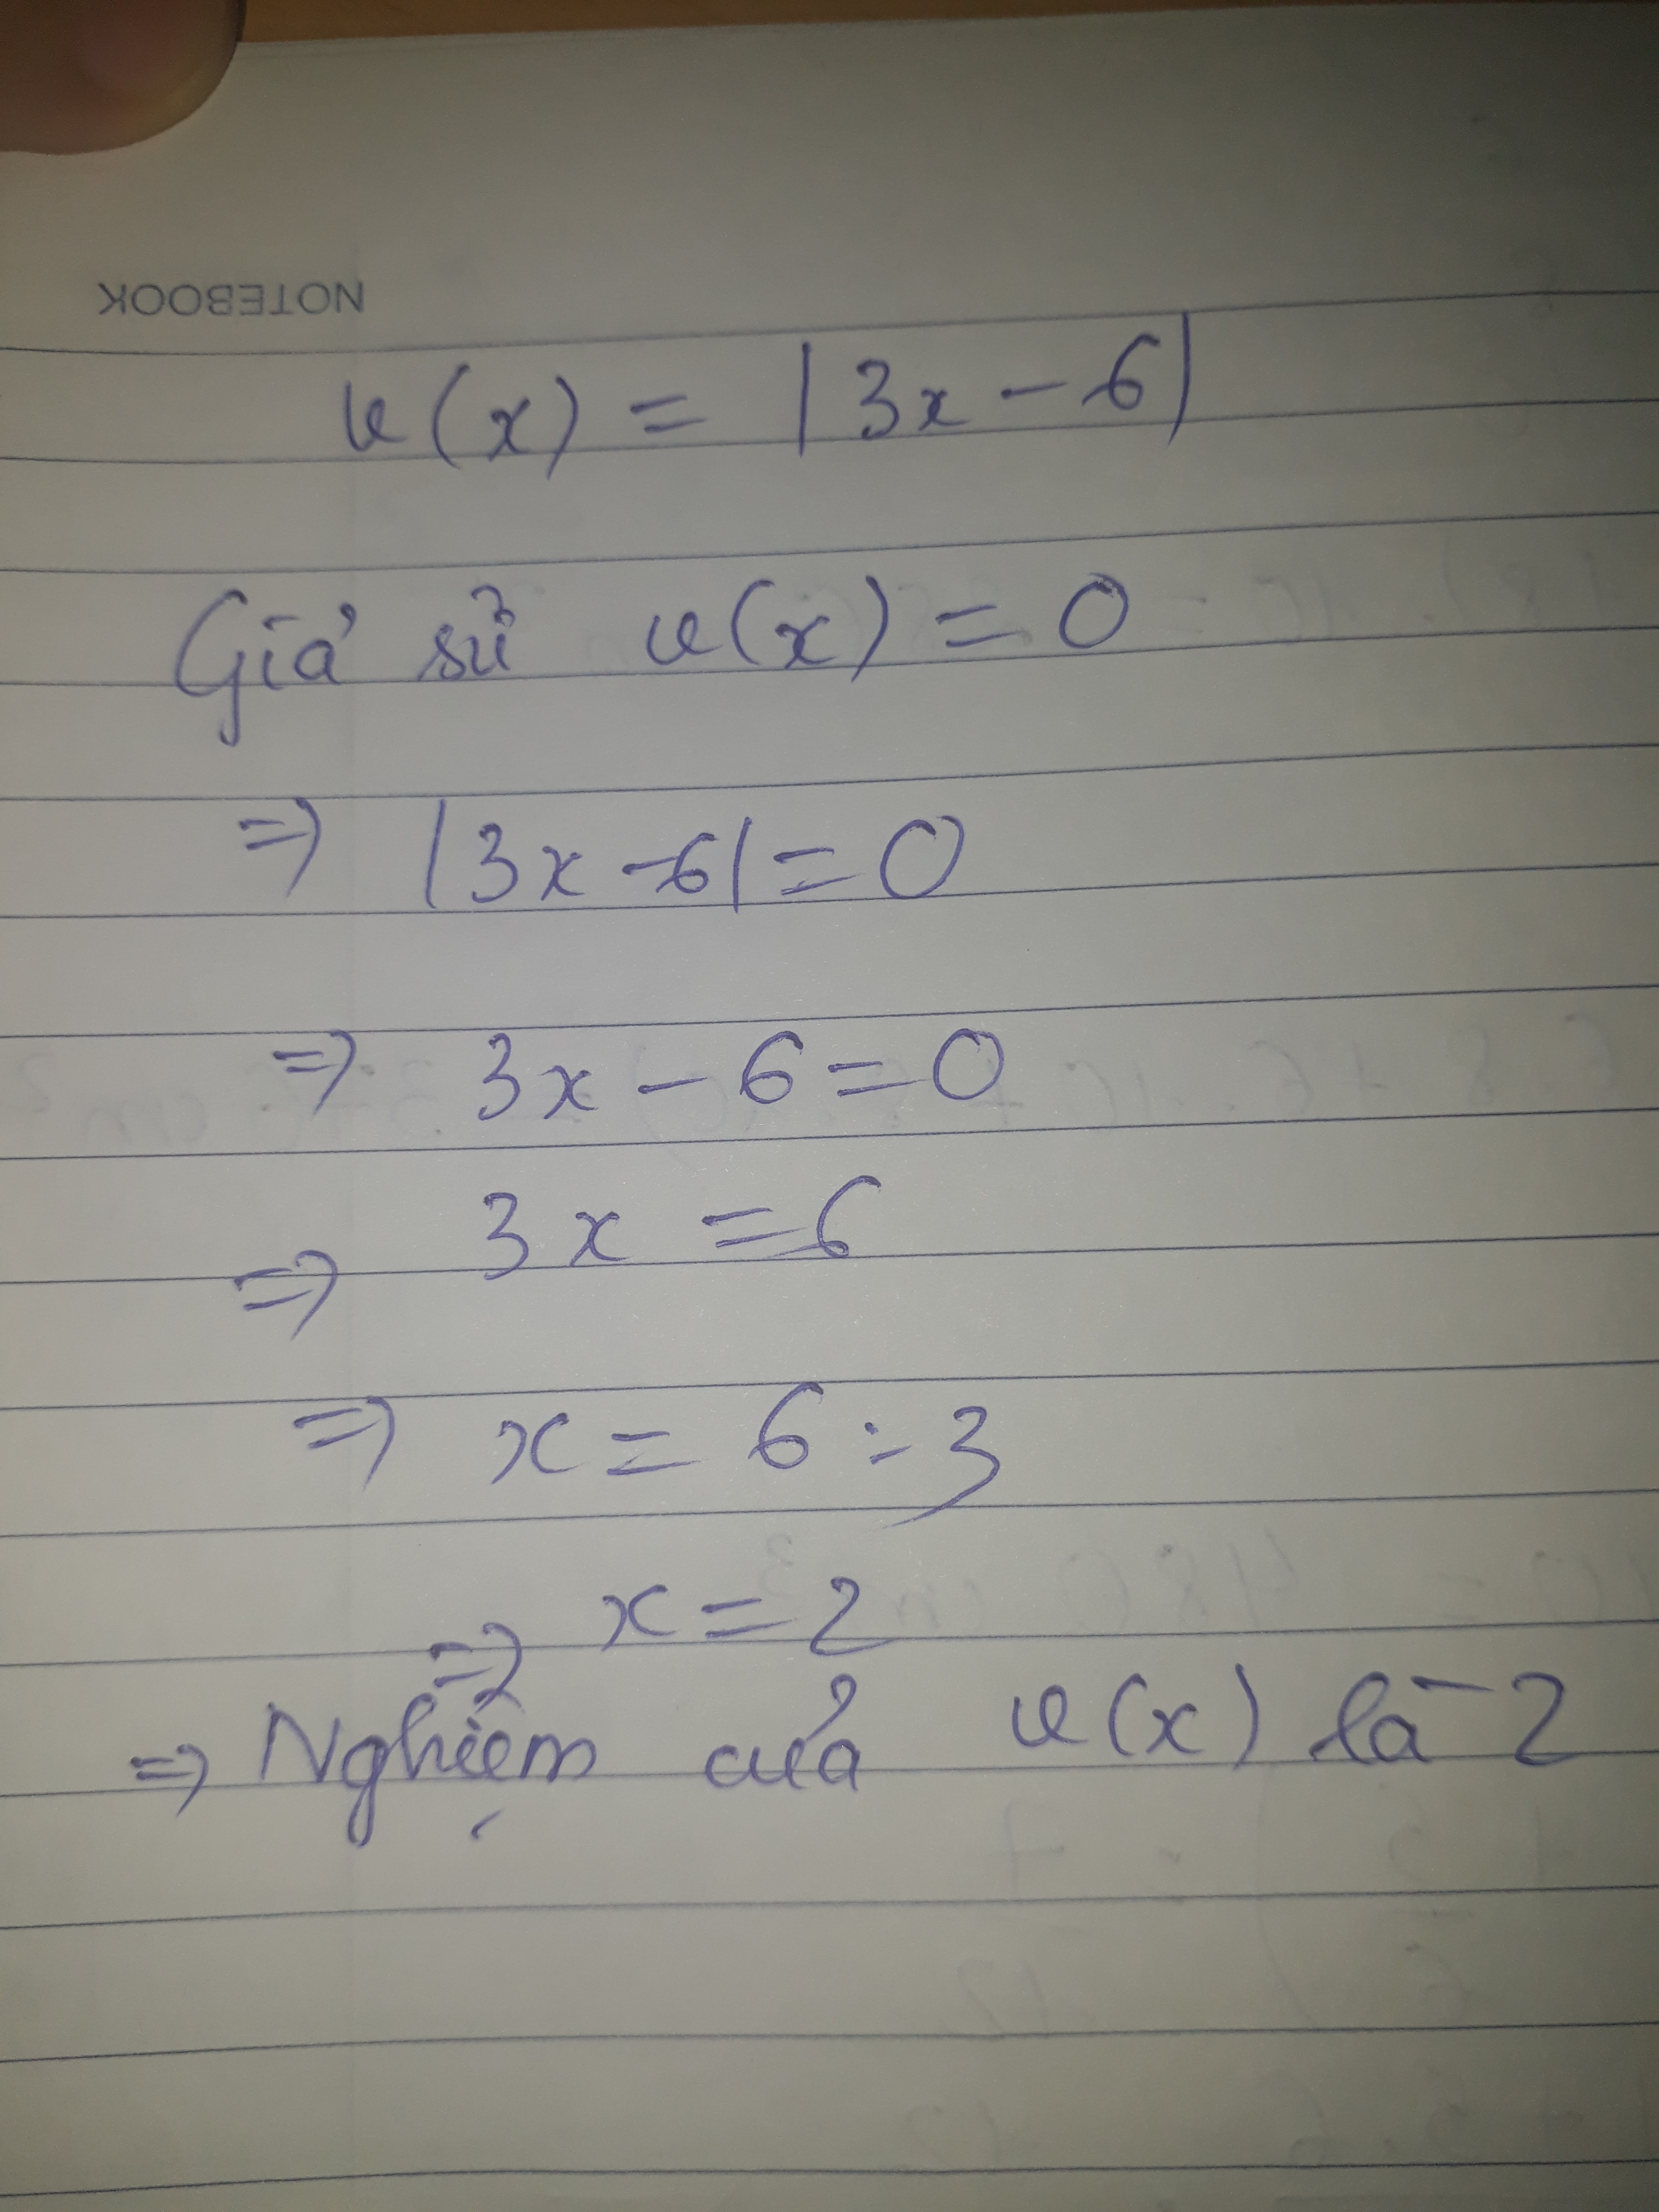 NOTEBOOK
v(x) = |3x - 6|
Giả sử v(x) = 0
=> |3x - 6| = 0
=> 3x - 6 = 0
=> 3x = 6
=> x = 6 : 3
=> x = 2
=> Nghiệm của v(x) là 2